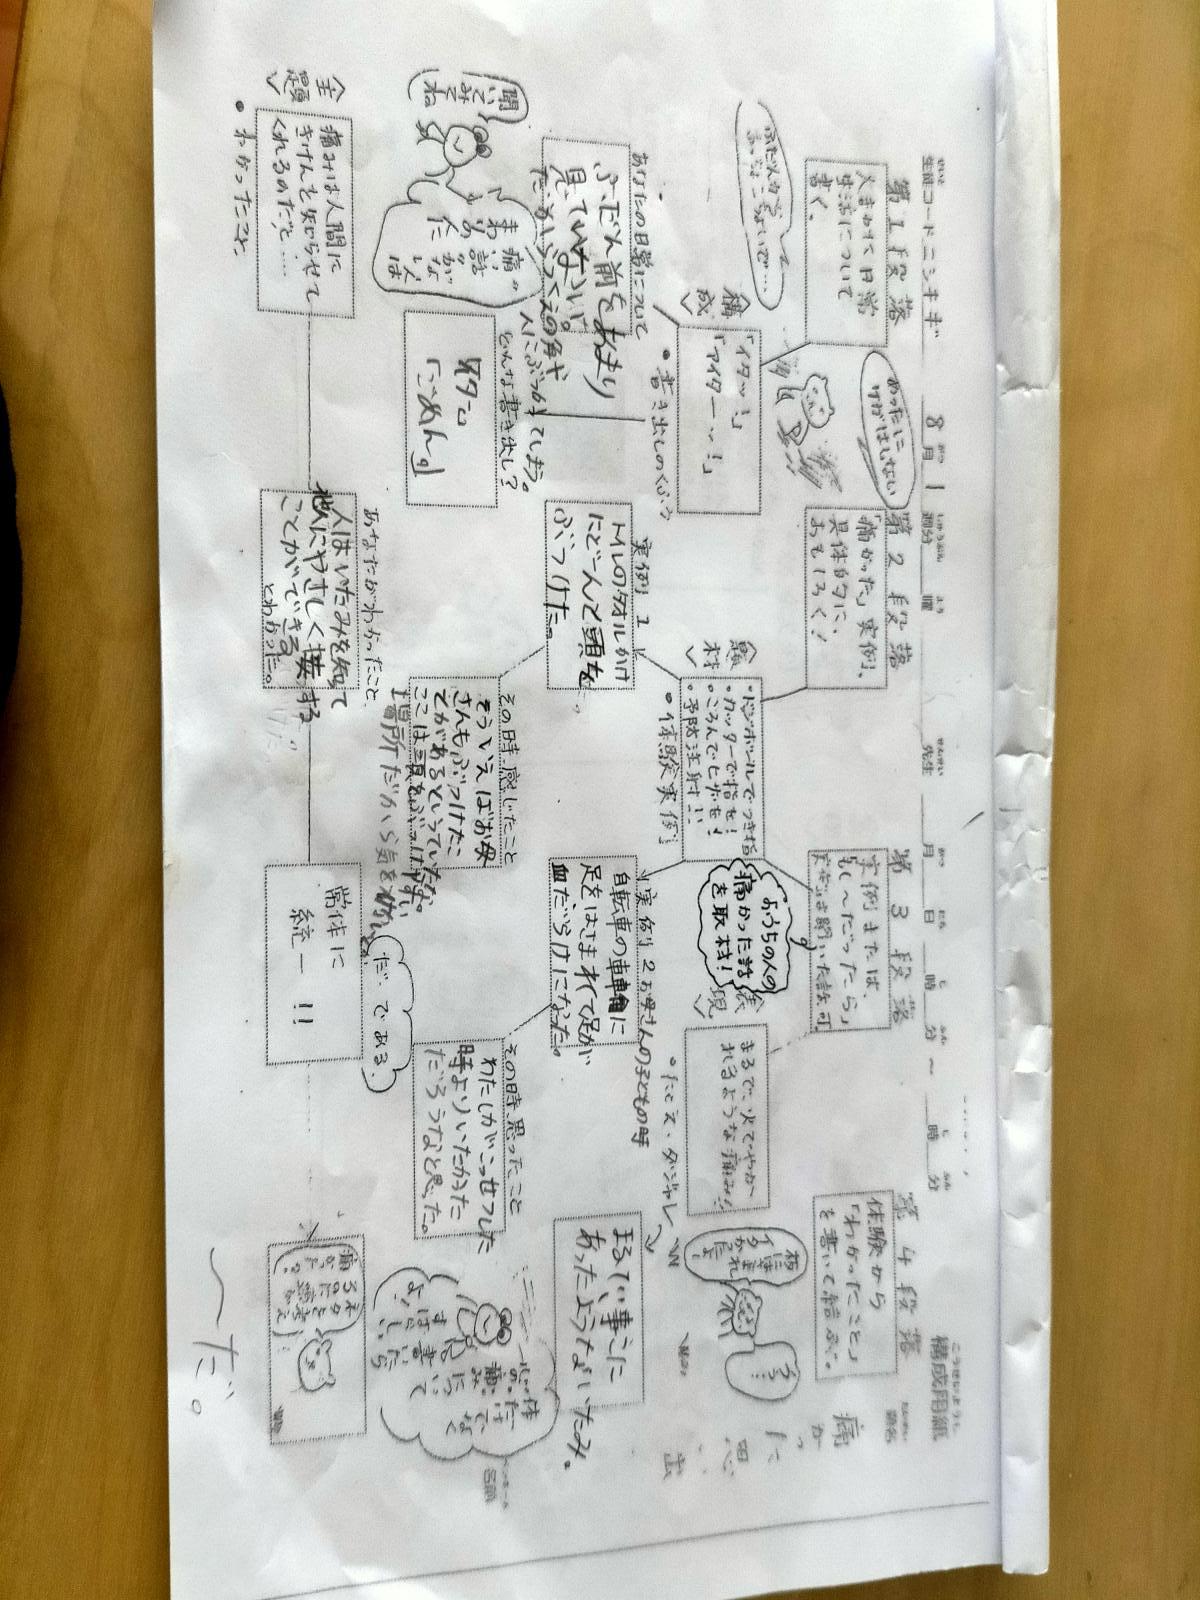 生徒コード ニシキギ 8月 1 週分 曜 先生 月 日 時 分 ～ 時 分 構成用紙
題名
痛かった思い出
ペンネーム
名前
第1段落
書く。
めったに
けがはしない
第2段落
「痛かった」実例、
具体的に、
おもしろく！
第3段落
実例または、
「もし～だったら」
第4段落
体験から
「わかったこと」
を書いて結ぶ。
〈構成〉
「イタッ！」
「アイターッ！」
・書き出しのくふう
〈題材〉
・ドッジボールでつき指
・カッターで指を！
・ころんでヒザを！
・予防注射…
・体験実例
おうちの人の
痛かった話
を取材！
〈表現〉
まるで、火でやか
れるような痛み!!
・たとえ・ダジャレ
あなたの日常について
ふだん前をあまり
見ていない。
だからつくえの角や
人にぶつかってしまう。
どんな書き出し？
「ごめん。」
実例1
トイレのタオルかけ
にどーんと頭を
ぶつけた。
その時感じたこと
そういえばお母
さんもぶつけたこ
とがあるといっていたな。
ここは頭をぶつけやすい
場所だから気を付けよう。
実例2 お母さんの子どもの時
自転車の車輪に
足をはさまれて足が
血だらけになった。
その時思ったこと
わたしがこっせつした
時よりいたかった
だろうなと思った。
まるでい事こに
あったようないたみ。
聞いてみてね
体だけでなく
心の“痛み”に
ついて書いて
〈主題〉
痛みは人間に
きけんを知らせて
くれるのだと……
・わかったこと
あなたがわかったこと
人はいたみを知って
他人にやさしく接する
ことができる
とわかった。
常体に
統一!!
だ・である
～だ。